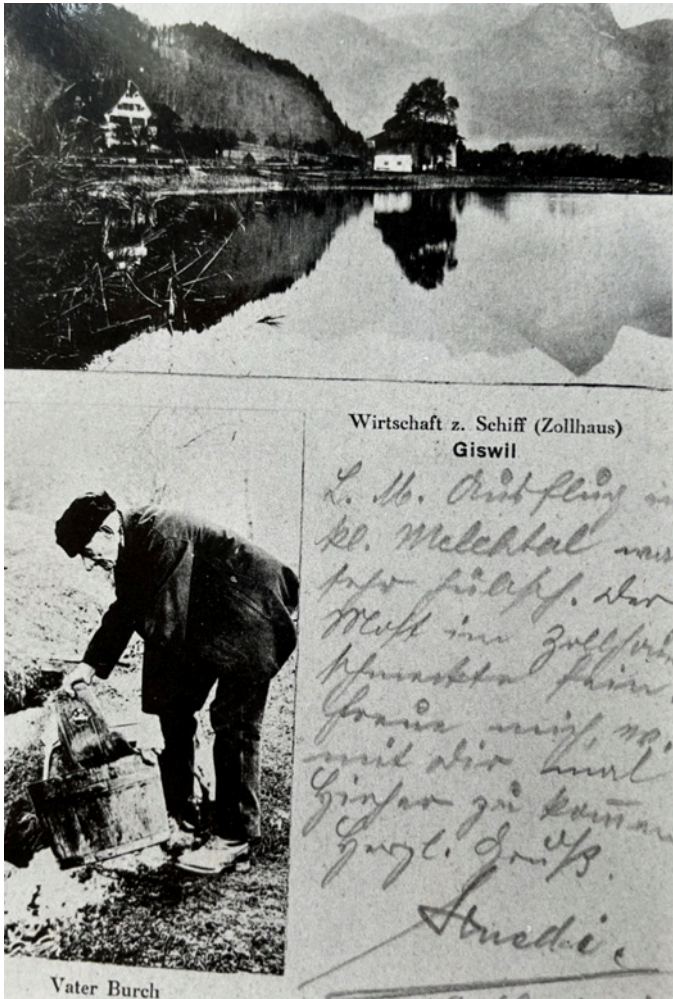 Wirtschaft z. Schiff (Zollhaus)
Giswil
L. M. Ausflug in
kl. Melchtal war
sehr hübsch. Der
Most im Zollhaus
schmeckte fein.
Freue mich,
mit Dir mal
hieher zu kommen
Herzl. Gruß.
Vater Burch